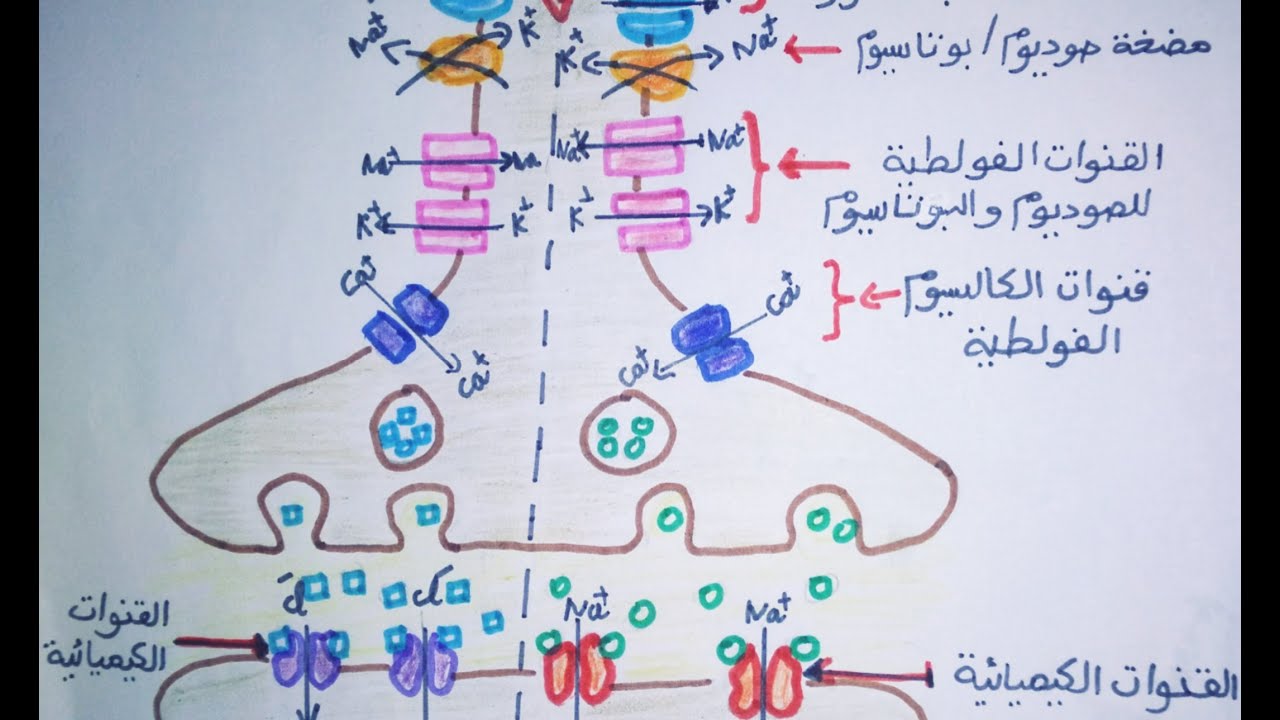 Na⁺ K⁺ K⁺ Na⁺
مضخة صوديوم/بوتاسيوم
القنوات الفولطية
للصوديوم والبوتاسيوم
Na⁺ Na Na⁺ Na⁺
K⁺ K⁺ K⁺ K⁺
قنوات الكالسيوم
الفولطية
Ca⁺ Ca⁺
Ca⁺ Ca⁺
القنوات
الكيميائية
Cl⁻ Cl⁻ Na⁺ Na⁺
القنوات الكيميائية